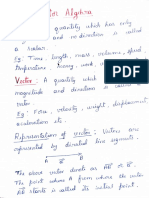 Algebra
quantity which has only
and no direction is called
a scalar.
Eg: Time, length, mass, volume, speed,
Temperature, energy, work,
Vector: A quantity which
magnitude and direction is called
vector.
Eg: Force, velocity, weight, displacement,
acceleration etc.
Representation of vector: Vectors are
represented by directed line segments.
A B
The above vector denote as AB or
The point A from where the vector
AB starts is called its initial point.